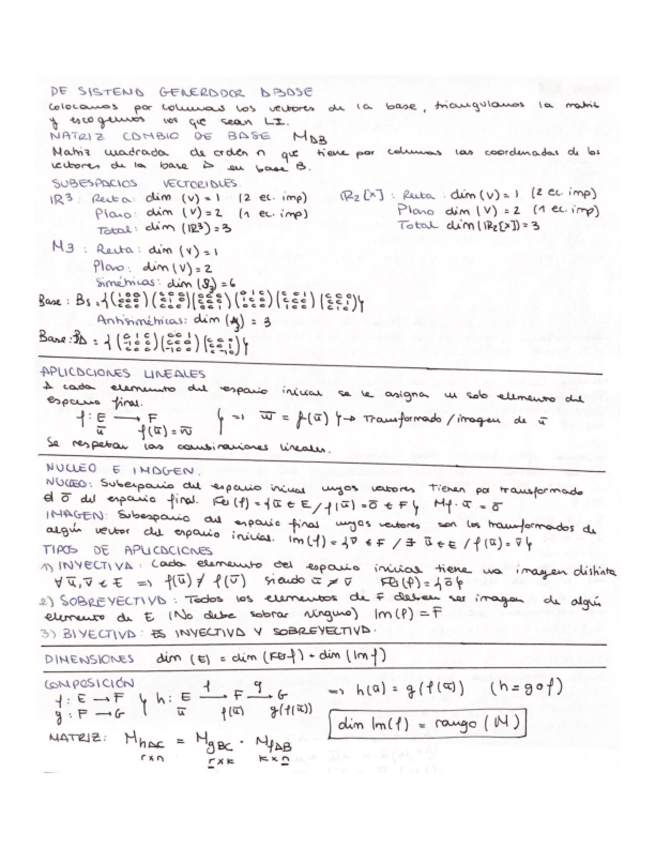 DE SISTEMA GENERADOR A BASE
Colocamos por columnas los vectores de la base, triangulamos la matriz
y escogemos los que sean LI.
MATRIZ CAMBIO DE BASE M_AB
Matriz cuadrada de orden n que tiene por columnas las coordenadas de los
vectores de la base A en base B.
SUBESPACIOS VECTORIALES.
ℝ³: Recta: dim (V) = 1 (2 ec. imp)
Plano: dim (V) = 2 (1 ec. imp)
Total: dim (ℝ³) = 3
ℝ₂[x]: Recta: dim (V) = 1 (2 ec. imp)
Plano dim (V) = 2 (1 ec. imp)
Total dim (ℝ₂[x]) = 3
M3: Recta: dim (V) = 1
Plano: dim (V) = 2
Simétricas: dim (S₃) = 6
Base: Bs = {
Antisimétricas: dim (A₃) = 3
Base: B_A = {
APLICACIONES LINEALES
A cada elemento del espacio inicial se le asigna un solo elemento del
espacio final.
f: E → F } => w̄ = f(ū) } → Transformado/imagen de ū
ū f(ū) = w̄
Se respetan las combinaciones lineales.
NUCLEO E IMAGEN.
NUCLEO: Subespacio del espacio inicial cuyos vectores tienen por transformado
el ō del espacio final. Ker(f) = {ū ∈ E / f(ū) = ō ∈ F} Mf · ū = ō
IMAGEN: Subespacio del espacio final cuyos vectores son los transformados de
algún vector del espacio inicial. Im(f) = {v̄ ∈ F / ∃ ū ∈ E / f(ū) = v̄}
TIPOS DE APLICACIONES
1) INYECTIVA: Cada elemento del espacio inicial tiene una imagen distinta
∀ ū, v̄ ∈ E => f(ū) ≠ f(v̄) siendo ū ≠ v̄ Ker(f) = {ō}
2) SOBREYECTIVA: Todos los elementos de F deben ser imagen de algún
elemento de E (No debe sobrar ninguno) Im(f) = F
3) BIYECTIVA: ES INYECTIVA Y SOBREYECTIVA.
DIMENSIONES dim (E) = dim (Ker f) + dim (Im f)
COMPOSICIÓN
f: E → F } h: E →f F →g G => h(ū) = g(f(ū)) (h = g∘f)
g: F → G ū f(ū) g(f(ū))
dim Im(f) = rango (M)
MATRIZ: M_hAC = M_gBC · M_fAB
r×n r×k k×n